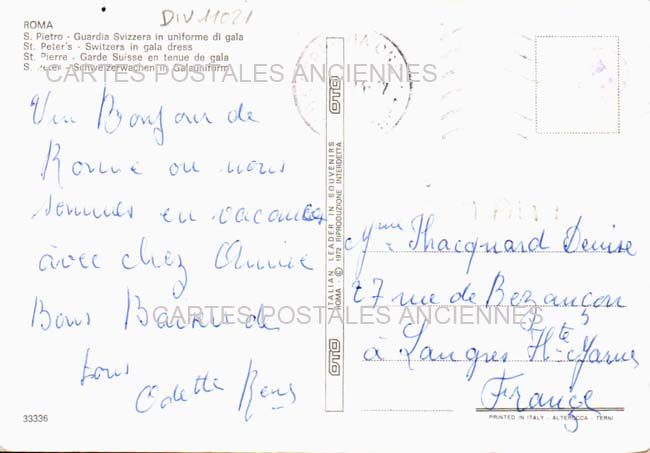 DIV11021
ROMA
S. Pietro - Guardia Svizzera in uniforme di gala
St. Peter's - Switzers in gala dress
St. Pierre - Garde Suisse en tenue de gala
S. Peter - Schweizerwachen in Galauniform
CARTES POSTALES ANCIENNES
Un Bonjour de
Rome ou nous
sommes en vacances
avec chez Annie
Bons Baisers de
tous
Odette
33336
OTO
ITALIAN LEADER IN SOUVENIRS
ROMA - © 1972 RIPRODUZIONE INTERDETTA
OTO
Mme Thacquard Denise
27 rue de Bezançon
à Langres Hte Marne
France
CARTES POSTALES ANCIENNES
PRINTED IN ITALY - ALTEROCCA - TERNI